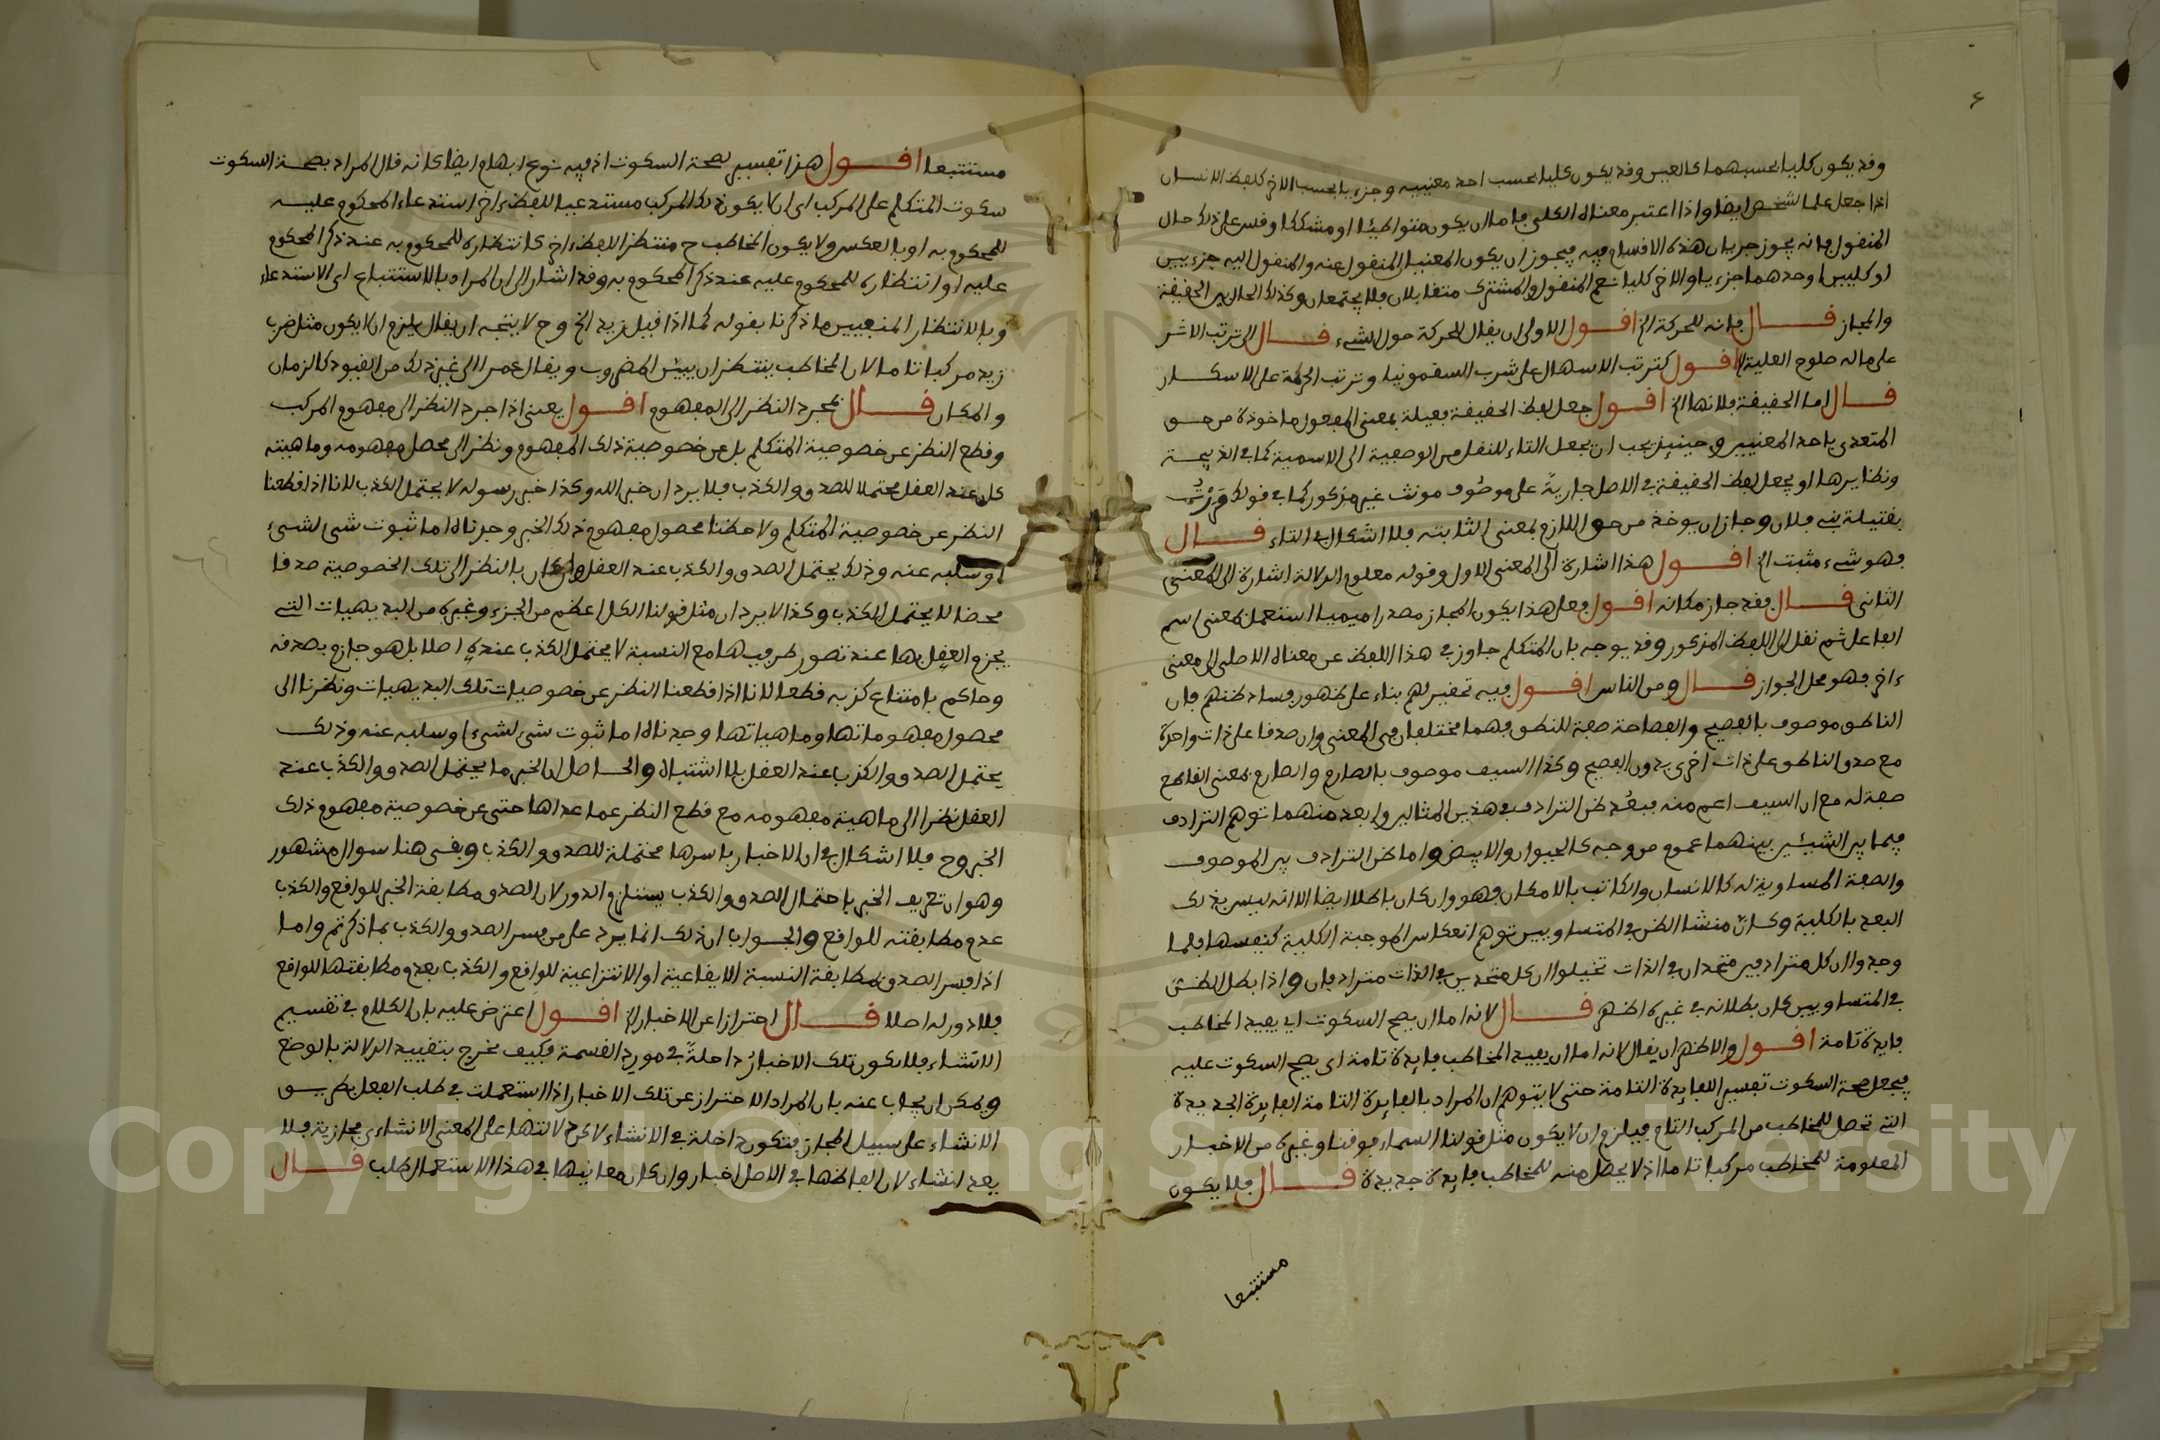 وقد يكون كليا بحسبهما كالعين وقد يكون كليا بحسب احد معنييه وجزءيا بحسب الاخر كلفظ الانسان
اذا جعل علما لشخص ايضا واذا اعتبر معناه الكلي فاما ان يكون متواطيا او مشككا وقس على ذلك حال
المنقول فانه يجوز جريان هذه الاقسام فيه فيجوز ان يكون المعنيان المنقول عنه والمنقول اليه جزءيين
او كليين او احدهما جزءيا والاخر كليا نعم المنقول والمشترك متقابلان فلا يجتمعان وكذلك الحال بين الحقيقة
والمجاز قال فانه للحركة الخ اقول الاولى ان يقال للحركة حول الشيء قال الى ترتب الاثر
على ماله صلوح العلية اقول كترتب الاسهال على شرب السقمونيا وترتب الحرمة على الاسكار
قال اما الحقيقة فلانها الخ اقول جعل لفظ الحقيقة فعيلة بمعنى المفعول ماخوذة من حق
المتعدي باحد المعنيين وحينيذ يجب ان يجعل التاء للنقل من الوصفية الى الاسمية كما في الذبيحة
ونظايرها او يجعل لفظ الحقيقة في الاصل جارية على موصوف مونث غير مذكور كما في قولك مررت
بقتيلة بني فلان وجاز ان يوخذ من حق اللازم بمعنى الثابتة فلا اشكال في التاء قال
فهو شيء مثبت الخ اقول هذا اشارة الى المعنى الاول وقوله معلوم الدلالة اشارة الى المعنى
الثاني قال فقد جاز مكانه اقول فعلى هذا يكون المجاز مصدرا ميميا استعمل بمعنى اسم
الفاعل ثم نقل الى اللفظ المذكور وقد يوجه بان المتكلم جاوز في هذا اللفظ عن معناه الاصلي الى معنى
ءاخر فهو محل الجواز قال ومن الناس اقول فيه تحقير لهم بناء على ظهور فساد ظنهم فان
الناطق موصوف بالفصيح والفصاحة صفة للنطق فهما مختلفان في المعنى وان صدقا على ذات واحدة
مع صدق الناطق على ذات اخرى بدون الفصيح وكذا السيف موصوف بالصارم والصارم بمعنى القاطع
صفة له مع ان السيف اعم منه فبعد ظن الترادف في هذين المثالين وابعد منهما توهم الترادف
فيما بين الشيئين بينهما عموم من وجه كالحيوان والابيض واما ظن الترادف بين الموصوف
والصفة المساوية له كالانسان والكاتب بالامكان فهو وان كان باطلا ايضا الا انه ليس بذلك
البعد بالكلية وكان منشا الظن في المتساويين توهم انعكاس الموجبة الكلية كنفسها فلما
وجدوا ان كل مترادفين متحدان في الذات تخيلوا ان كل متحدين في الذات مترادفان واذا بطل الظن
في المتساويين كان بطلانه في غيره اظهر قال لانه اما ان يصح السكوت اي يفيد المخاطب
فايدة تامة اقول والاظهر ان يقال لانه اما ان يفيد المخاطب فايدة تامة اي يصح السكوت عليه
فيجعل صحة السكوت تفسيرا للفايدة التامة حتى لا يتوهم ان المراد بالفايدة التامة الفايدة الجديدة
التي تحصل للمخاطب من المركب التام فيلزم ان لا يكون مثل قولنا السماء فوقنا وغيره من الاخبار
المعلومة للمخاطب مركبا تاما اذ لا يحصل منه للمخاطب فايدة جديدة قال فلا يكون
مستتبعا
مستتبعا اقول هذا تفسير لصحة السكوت اذ فيه نوع ابهام ايضا كانه قال المراد بصحة السكوت
سكوت المتكلم على المركب اي ان لا يكون ذلك المركب مستدعيا للفظ ءاخر استدعاء المحكوم عليه
للمحكوم به او بالعكس ولا يكون المخاطب ح منتظرا للفظ ءاخر كانتظاره للمحكوم به عند ذكر المحكوم
عليه او انتظاره للمحكوم عليه عند ذكر المحكوم به وقد اشار الى ان المراد بالاستتباع اي الاستدعاء
وبالانتظار المنفيين ما ذكرنا بقوله كما اذا قيل زيد الخ وح لا يتجه ان يقال يلزم ان لا يكون مثل ضرب
زيد مركبا تاما لان المخاطب ينتظر ان يبين المضروب ويقال عمرا الى غير ذلك من القيود كالزمان
والمكان قال بمجرد النظر الى المفهوم اقول يعني اذا جرد النظر الى مفهوم المركب
وقطع النظر عن خصوصية المتكلم بل عن خصوصية ذلك المفهوم ونظر الى محصل مفهومه وماهيته
كان عند العقل محتملا للصدق والكذب فلا يرد ان خبر الله وكذا خبر رسوله لا يحتمل الكذب لانا اذا قطعنا
النظر عن خصوصية المتكلم ولاحظنا محصول مفهوم ذلك الخبر وجدناه اما ثبوت شيء لشيء
او سلبه عنه وذلك يحتمل الصدق والكذب عند العقل وان كان بالنظر الى تلك الخصوصية صدقا
محضا لا يحتمل الكذب وكذا لا يرد ان مثل قولنا الكل اعظم من الجزء وغيره من البديهيات التي
يجزم العقل بها عند تصور طرفيها مع النسبة لا يحتمل الكذب عنده اصلا بل هو جازم بصدقه
وحاكم بامتناع كذبه قطعا لانا اذا قطعنا النظر عن خصوصيات تلك البديهيات ونظرنا الى
محصول مفهوماتها وماهياتها وجدناه اما ثبوت شيء لشيء او سلبه عنه وذلك
يحتمل الصدق والكذب عند العقل بلا اشتباه والحاصل ان الخبر ما يحتمل الصدق والكذب عند
العقل نظرا الى ماهية مفهومه مع قطع النظر عما عداها حتى عن خصوصية مفهوم ذلك
الخبر وح فلا اشكال في ان الاخبار باسرها محتملة للصدق والكذب وبقي هنا سوال مشهور
وهو ان تعريف الخبر باحتمال الصدق والكذب يستلزم الدور لان الصدق مطابقة الخبر للواقع والكذب
عدم مطابقته للواقع والجواب ان ذلك انما يرد على من فسر الصدق والكذب بما ذكرتم واما
اذا فسر الصدق بمطابقة النسبة الايقاعية او الانتزاعية للواقع والكذب بعدم مطابقتها للواقع
فلا دور له اصلا قال احترازا عن الاخبار الخ اقول اعترض عليه بان الكلام في تقسيم
الانشاء فلا يكون تلك الاخبار داخلة في مورد القسمة فكيف يخرج بتقييد الدلالة بالوضع
ويمكن ان يجاب عنه بان المراد الاحتراز عن تلك الاخبار اذا استعملت في طلب الفعل بطريق
الانشاء على سبيل المجاز فتكون داخلة في الانشاء لاكن دلالتها على المعنى الانشاءي مجازية فلا
يعد انشاء لان الفاظها في الاصل اخبار وان كان معانيها في هذا الاستعمال طلب قال
Copyright © King Saud University